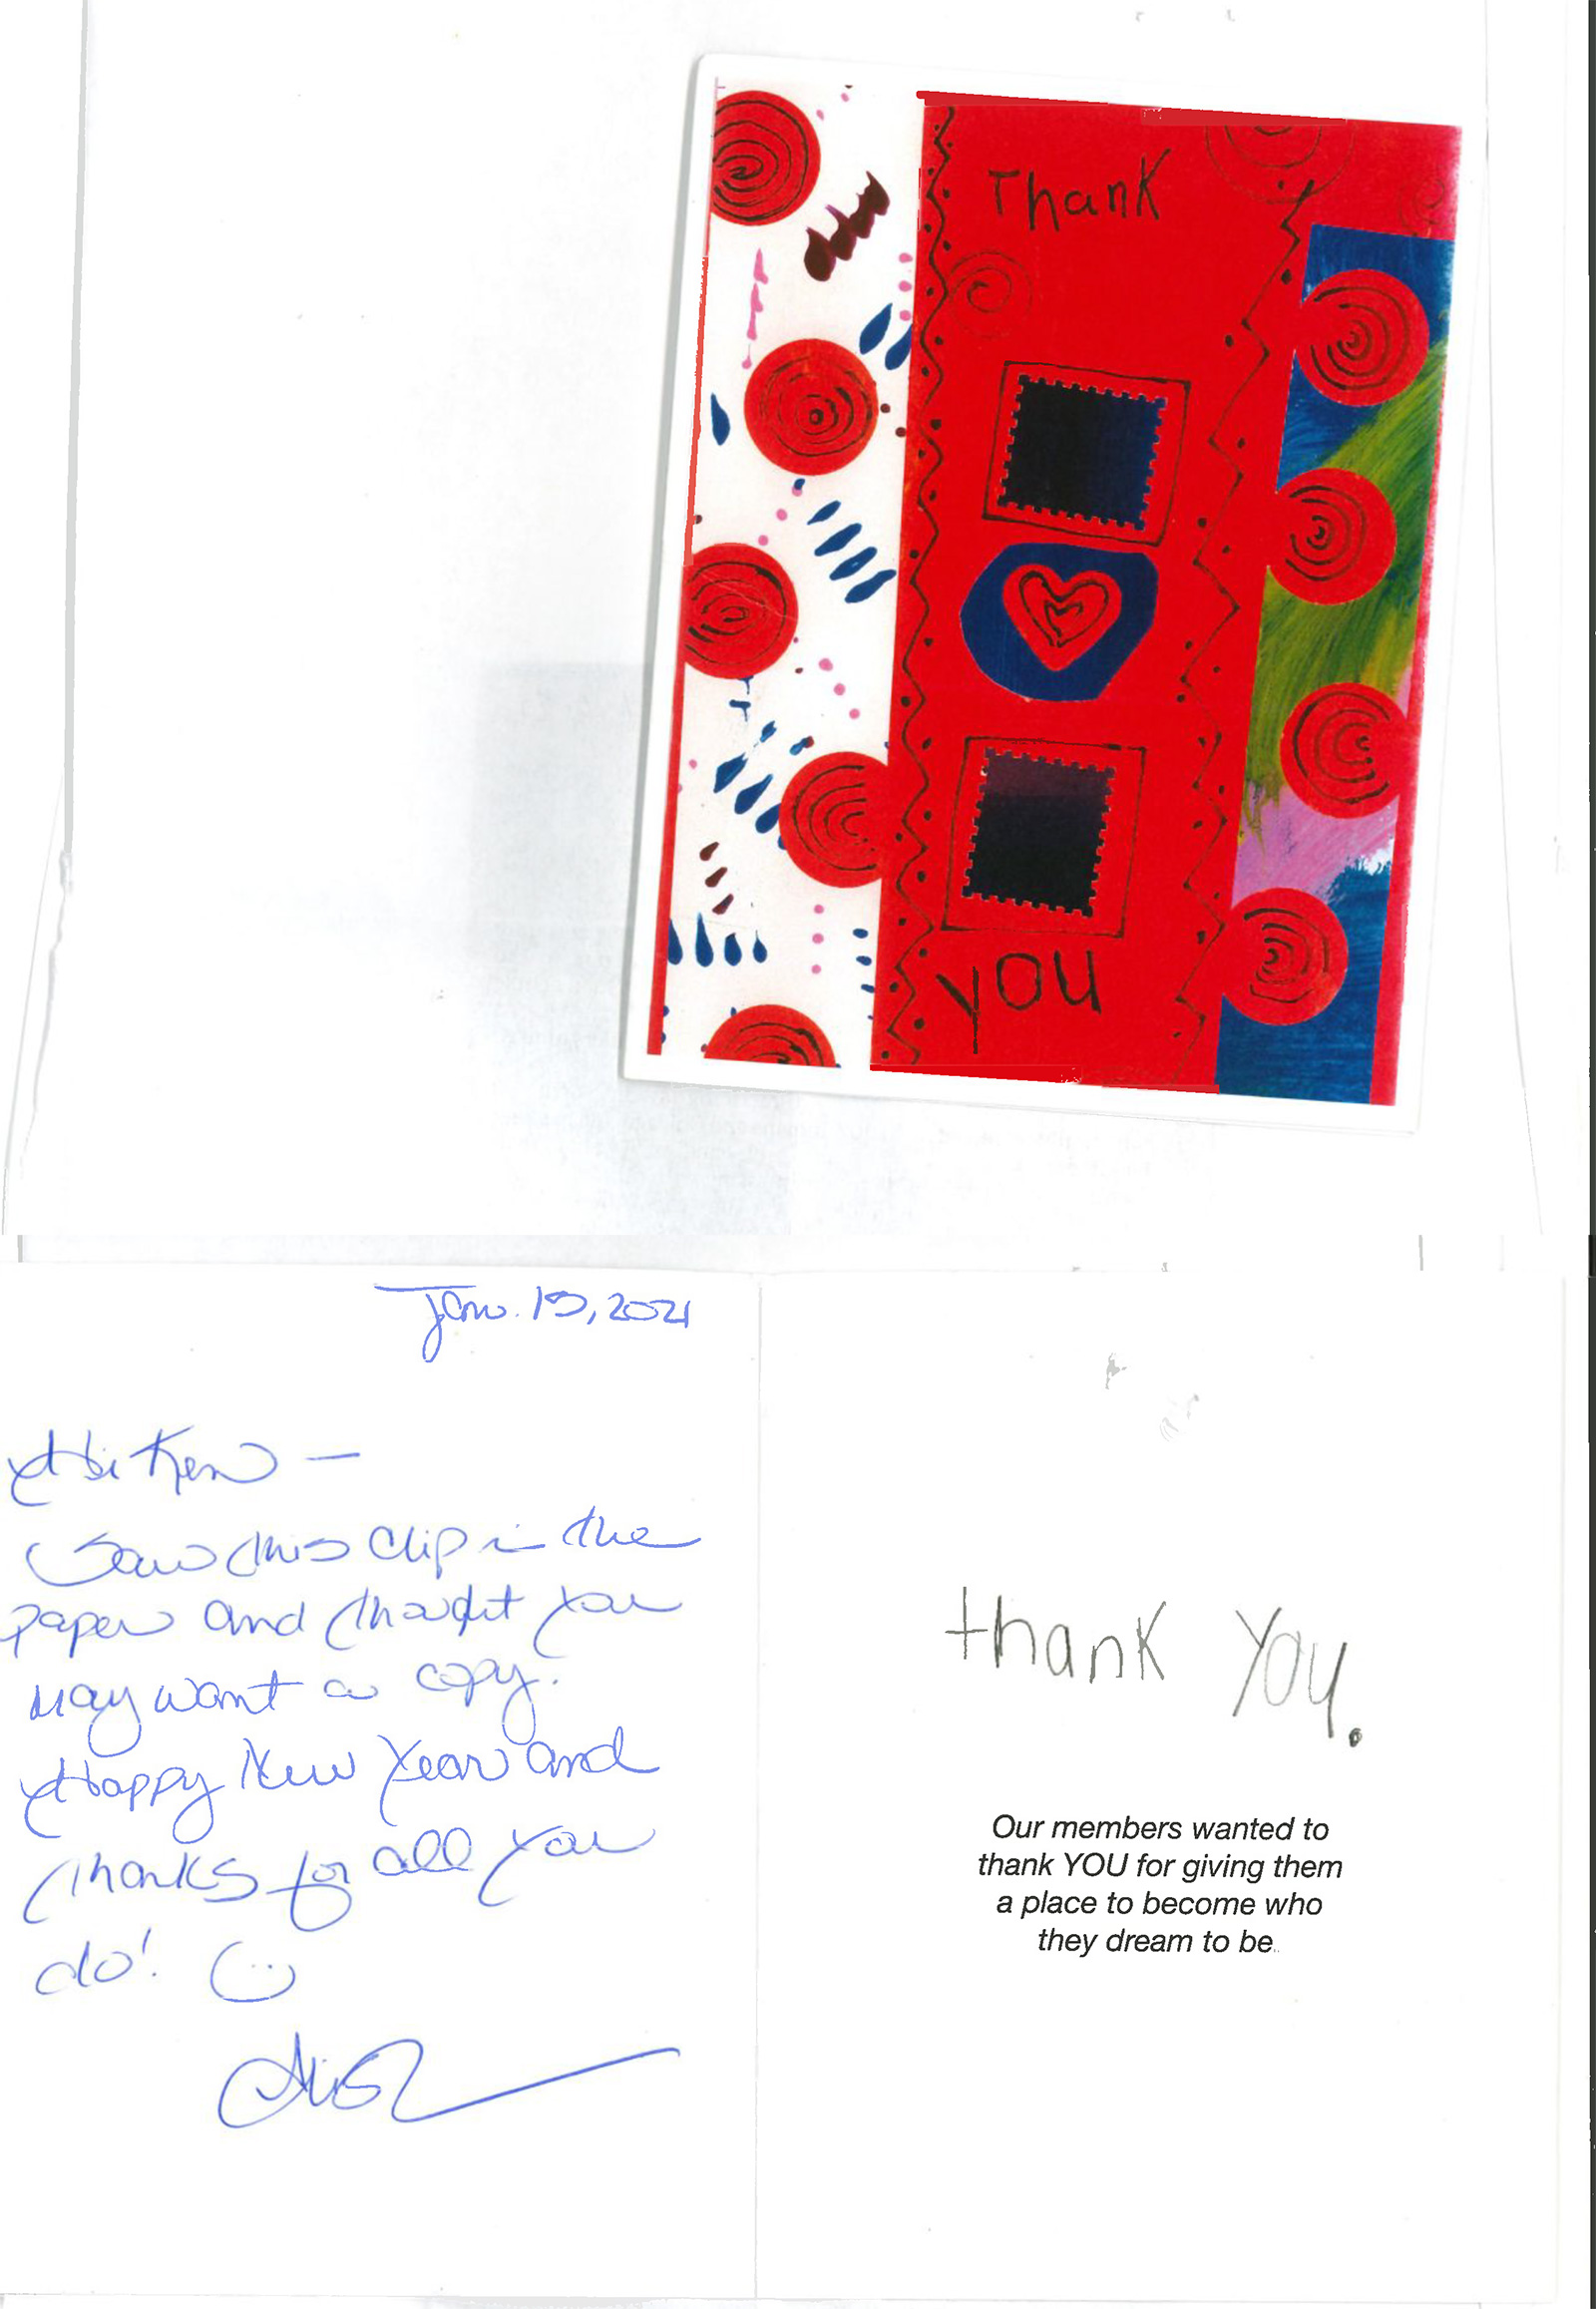 Thank
you
Jan. 15, 2021
Hi Ken —
Saw this clip in the
paper and thought you
may want a copy.
Happy New Year and
thanks for all you
do!
thank you.
Our members wanted to
thank YOU for giving them
a place to become who
they dream to be.